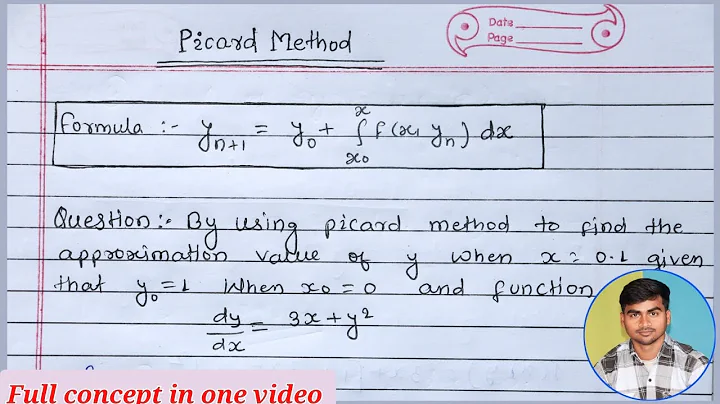 Picard Method
Date
Page
Formula :- y_{n+1} = y_0 + ∫_{x_0}^{x} f(x, y_n) dx
Question:- By using picard method to find the
approximation value of y when x = 0.1 given
that y_0 = 1 when x_0 = 0 and function
dy/dx = 3x + y²
Full concept in one video